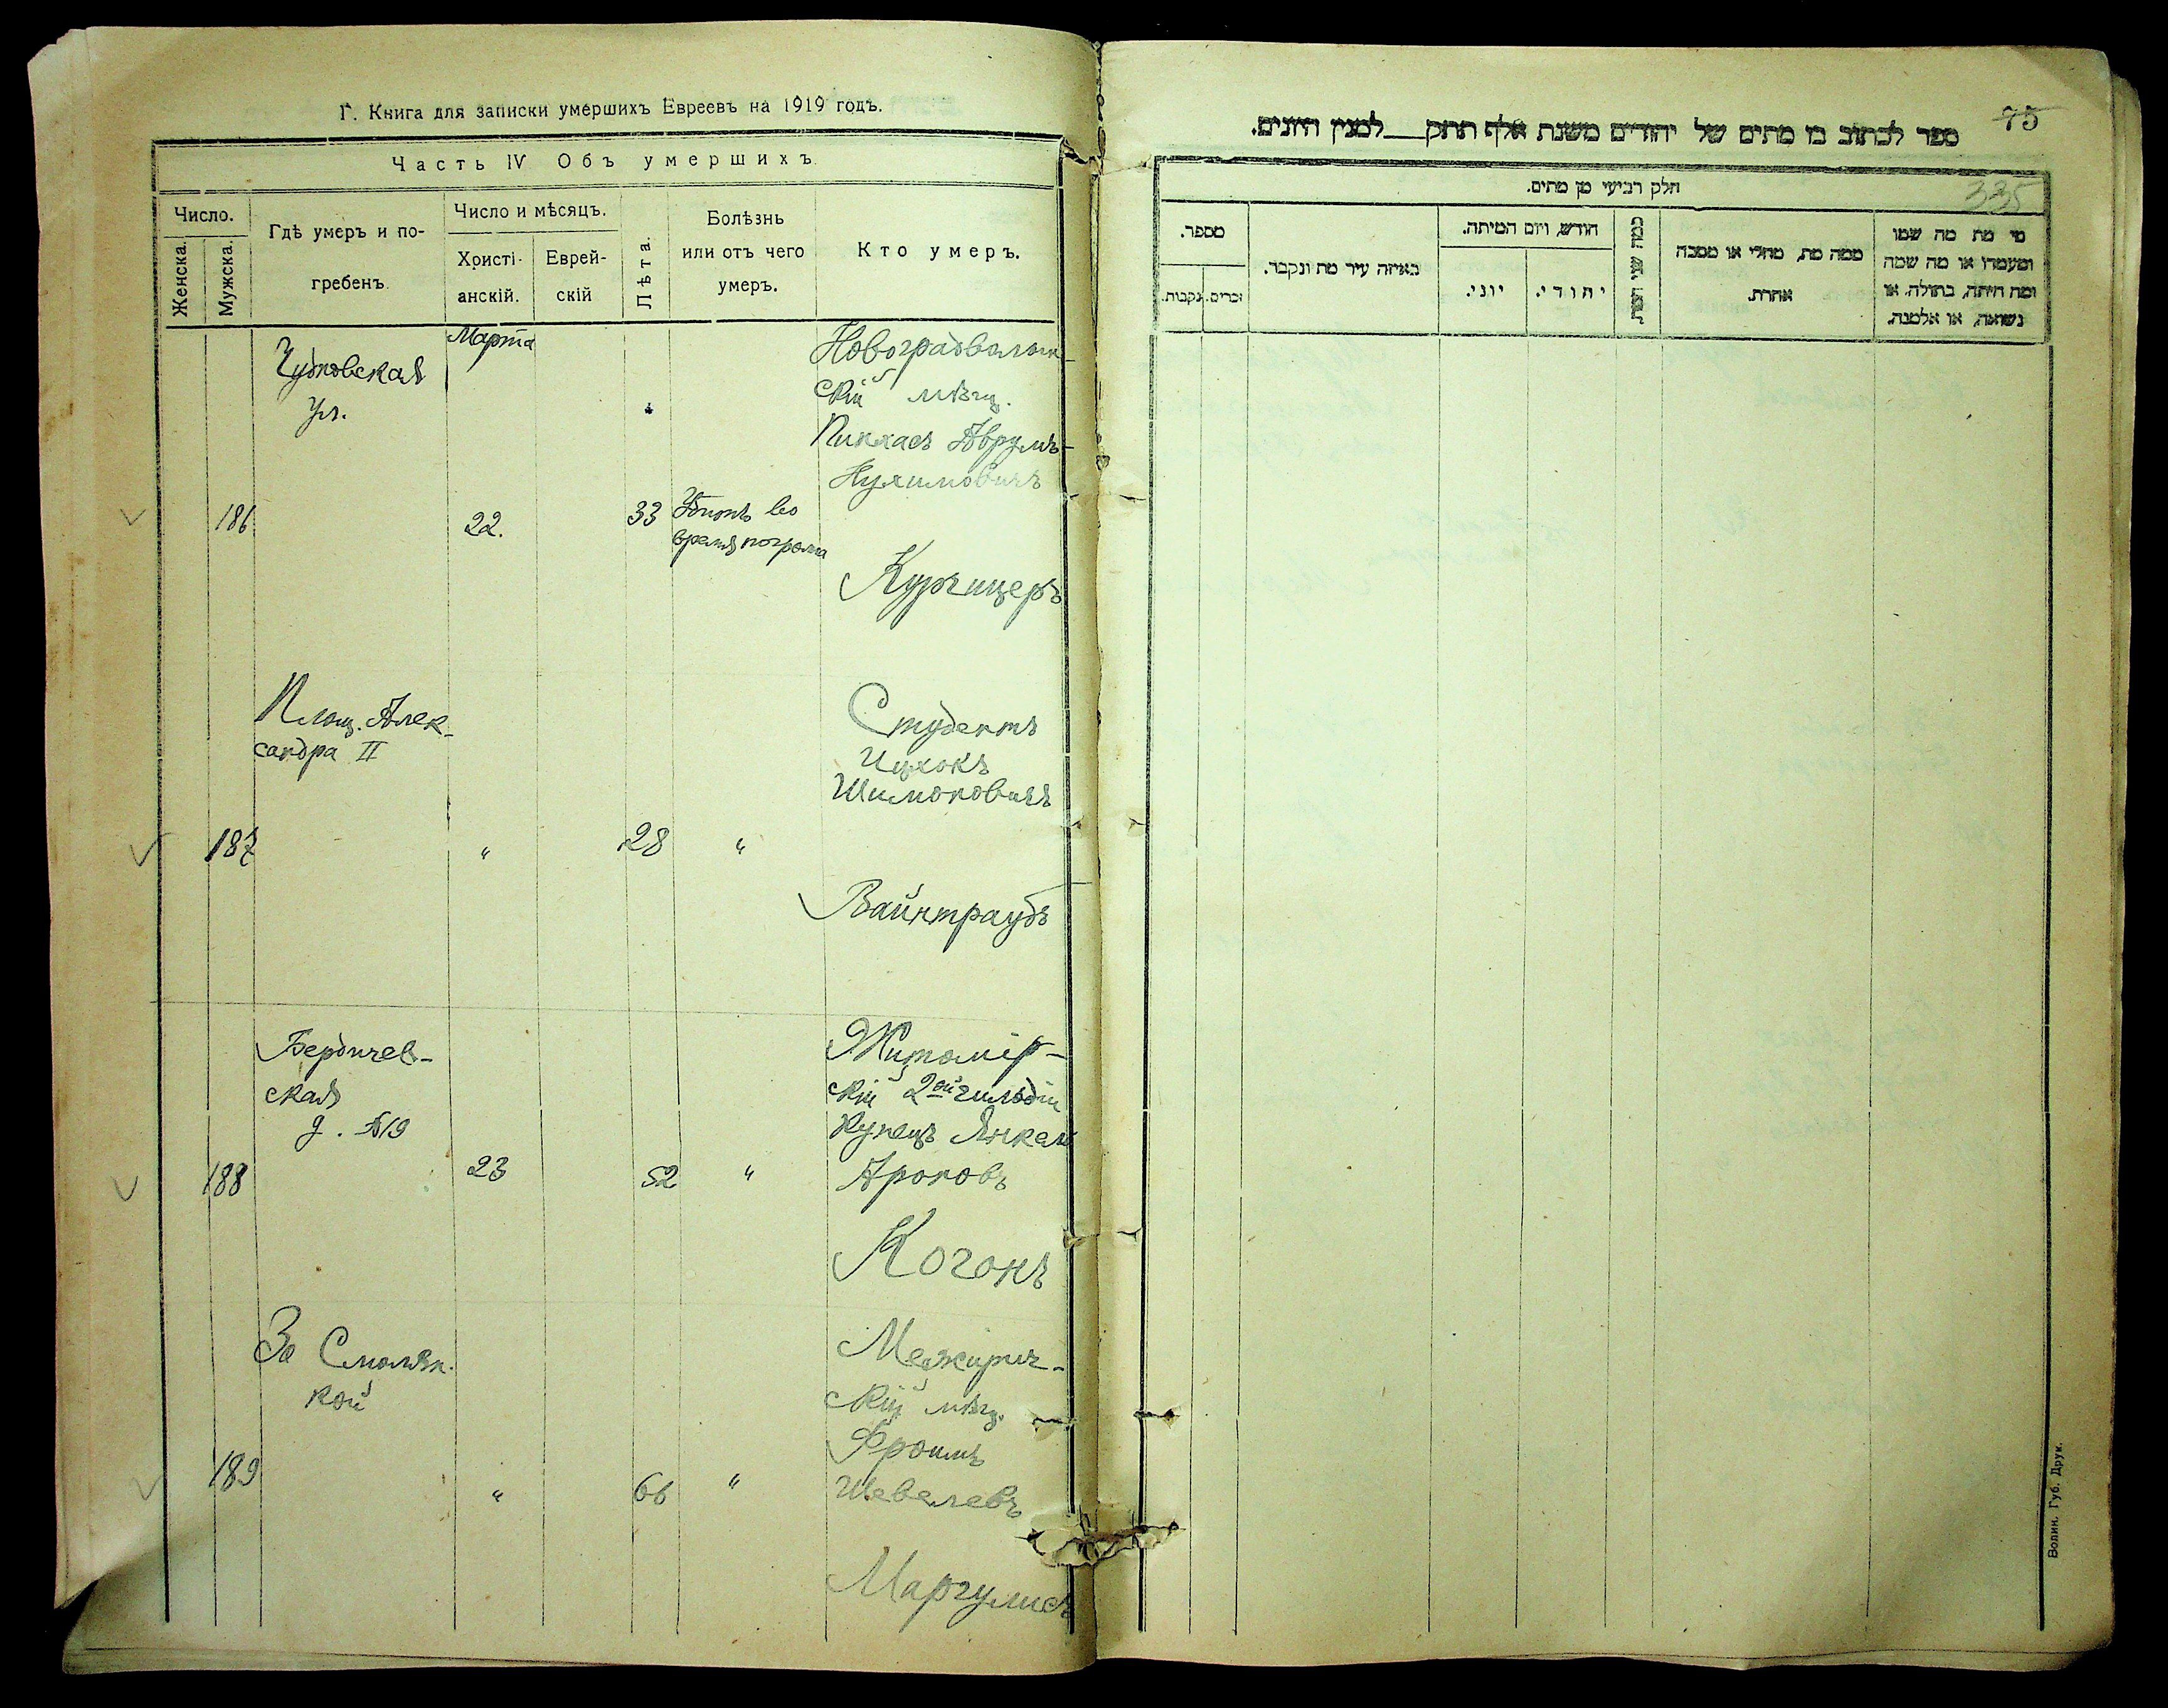 Г. Книга для записки умершихъ Евреевъ на 1919 годъ.
Часть IV Объ умершихъ
Число.
Женска.
Мужска.
Гдѣ умеръ и по-
гребенъ
Число и мѣсяцъ.
Христі-
анскій.
Еврей-
скій
Лѣта.
Болѣзнь
или отъ чего
умеръ.
Кто умеръ.
Марта
Чудновская
ул.
Новоградволын-
скій мѣщ.
Пинхасъ Аврумъ-
Нухимовичъ
186
22.
33
Убитъ во
время погрома
Курчицеръ
Площ. Алек-
сандра II
Студентъ
Ицхокъ
Шимоновичъ
187
"
28
"
Вайнтраубъ
Бердичев-
ская
д. №19
Житомір-
скій 2ой гильдіи
купецъ Янкель
188
23
52
"
Ароновъ
Когонъ
За Смолян-
кой
Межирич-
скій мѣщ.
Фроимъ
189
"
66
"
Шевелевъ
Маргулисъ
75
ספר לכתוב בו מתים של יהודים משנת אלף תתק למנין היונים.
335
חלק רביעי מן מתים.
מספר.
זכרים.
נקבות.
באיזה עיר מת ונקבר.
חודש, ויום המיתה.
יוני.
יהודי.
כמה שני
ממה מת, מחלי או מסבה
אחרת.
מי מת מה שמו
ומעמדו או מה שמה
ומה היתה, בתולה, או
נשואה, או אלמנה.
Волин. Губ. Друк.